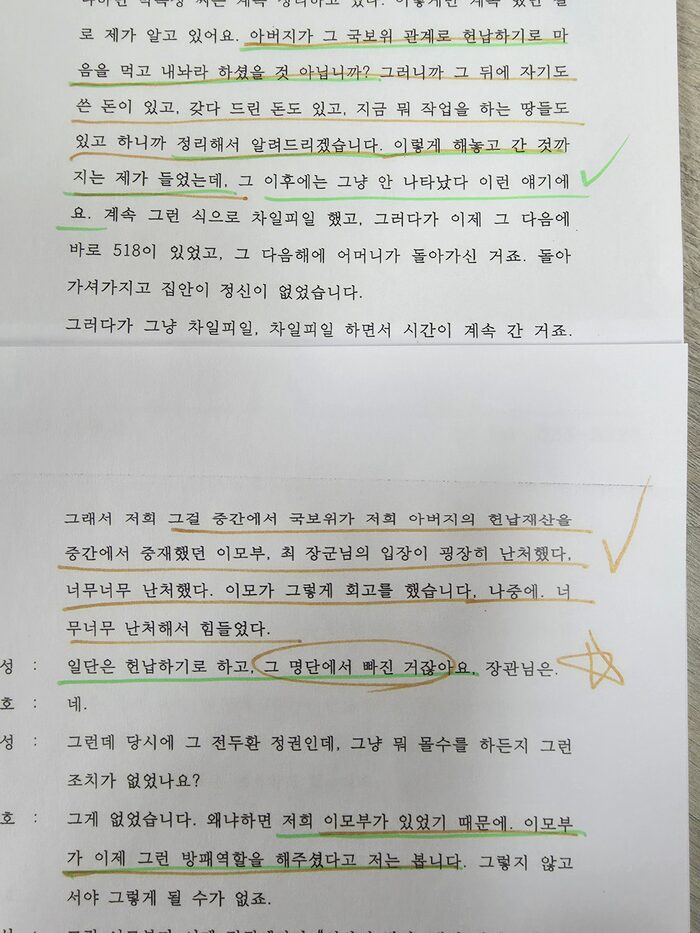 계속 정리하고 있다. 이렇게만 계속
로 제가 알고 있어요. 아버지가 그 국보위 관계로 헌납하기로 마
음을 먹고 내놔라 하셨을 것 아닙니까? 그러니까 그 뒤에 자기도
쓴 돈이 있고, 갖다 드린 돈도 있고, 지금 뭐 작업을 하는 땅들도
있고 하니까 정리해서 알려드리겠습니다. 이렇게 해놓고 간 것까
지는 제가 들었는데, 그 이후에는 그냥 안 나타났다 이런 얘기에
요. 계속 그런 식으로 차일피일 했고, 그러다가 이제 그 다음에
바로 518이 있었고, 그 다음해에 어머니가 돌아가신 거죠. 돌아
가셔가지고 집안이 정신이 없었습니다.
그러다가 그냥 차일피일, 차일피일 하면서 시간이 계속 간 거죠.
그래서 저희 그걸 중간에서 국보위가 저희 아버지의 헌납재산을
중간에서 중재했던 이모부, 최 장군님의 입장이 굉장히 난처했다,
너무너무 난처했다. 이모가 그렇게 회고를 했습니다, 나중에. 너
무너무 난처해서 힘들었다.
성 : 일단은 헌납하기로 하고, 그 명단에서 빠진 거잖아요, 장관님은.
호 : 네.
성 : 그런데 당시에 그 전두환 정권인데, 그냥 뭐 몰수를 하든지 그런
조치가 없었나요?
호 : 그게 없었습니다. 왜냐하면 저희 이모부가 있었기 때문에. 이모부
가 이제 그런 방패역할을 해주셨다고 저는 봅니다. 그렇지 않고
서야 그렇게 될 수가 없죠.